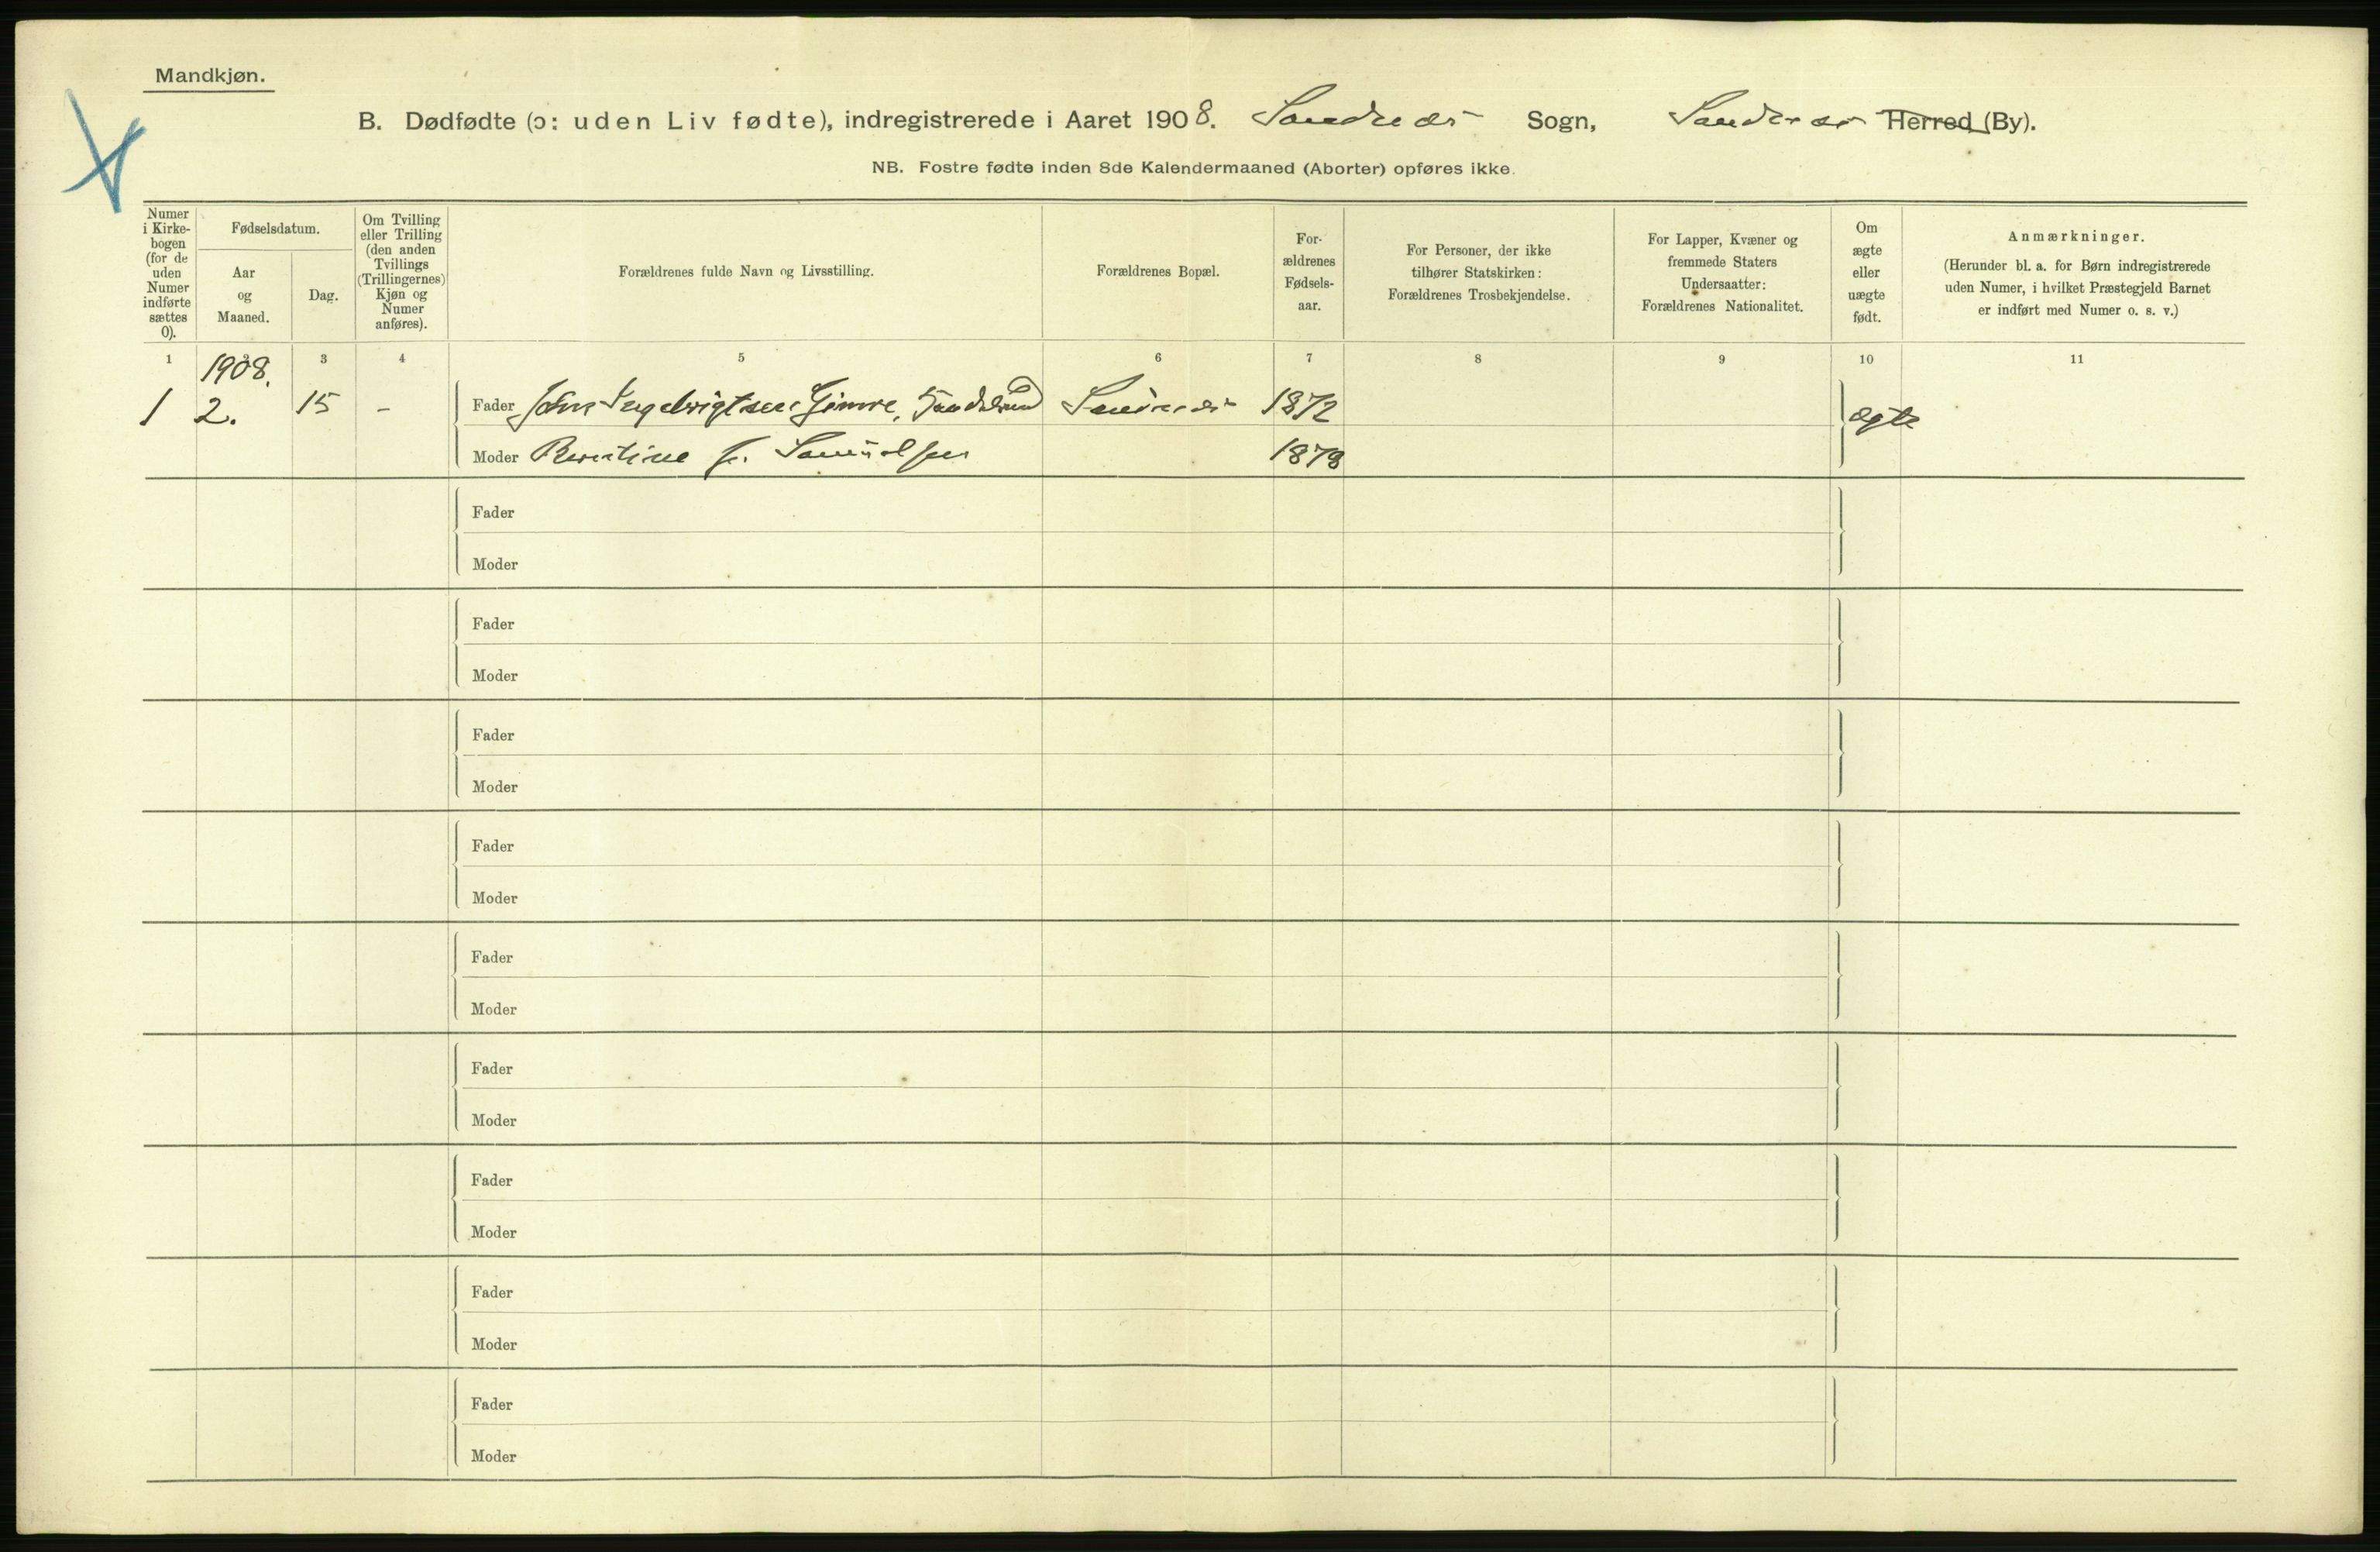 Mandkjøn.
B. Dødfødte (ɔ: uden Liv fødte), indregistrerede i Aaret 1908. Sandnæs Sogn, Sandnæs Herred (By).
NB. Fostre fødte inden 8de Kalendermaaned (Aborter) opføres ikke.
Numer
i Kirke-
bogen
(for de
uden
Numer
indførte
sættes
0).
Fødselsdatum.
Aar
og
Maaned.
Dag.
Om Tvilling
eller Trilling
(den anden
Tvillings
(Trillingernes)
Kjøn og
Numer
anføres).
Forældrenes fulde Navn og Livsstilling.
Forældrenes Bopæl.
For-
ældrenes
Fødsels-
aar.
For Personer, der ikke
tilhører Statskirken:
Forældrenes Trosbekjendelse.
For Lapper, Kvæner og
fremmede Staters
Undersaatter:
Forældrenes Nationalitet.
Om
ægte
eller
uægte
født.
Anmærkninger.
(Herunder bl. a. for Børn indregistrerede
uden Numer, i hvilket Præstegjeld Barnet
er indført med Numer o. s. v.)
1 2 3 4 5 6 7 8 9 10 11
1908.
1 2. 15 - Fader John Ingebrigtsen Gimre, Sandnæs 1872 ægte
Moder Berntine f. Samuelsen 1878
Fader
Moder
Fader
Moder
Fader
Moder
Fader
Moder
Fader
Moder
Fader
Moder
Fader
Moder
Fader
Moder
Fader
Moder